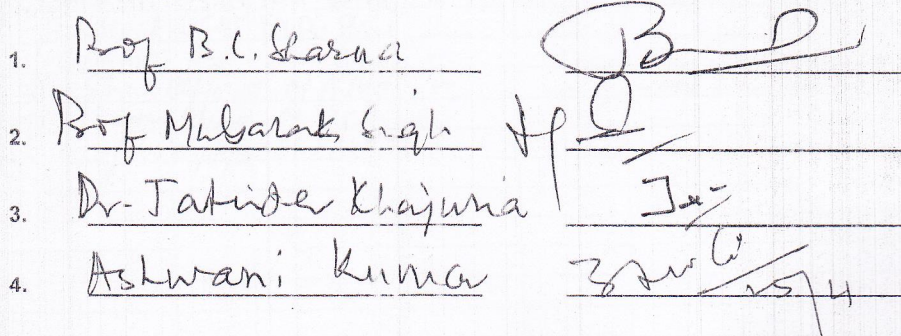 1. Prof B.C. Sharma
2. Prof Mubarak Singh
3. Dr. Jatinder Khajuria
4. Ashwani Kumar 15/4